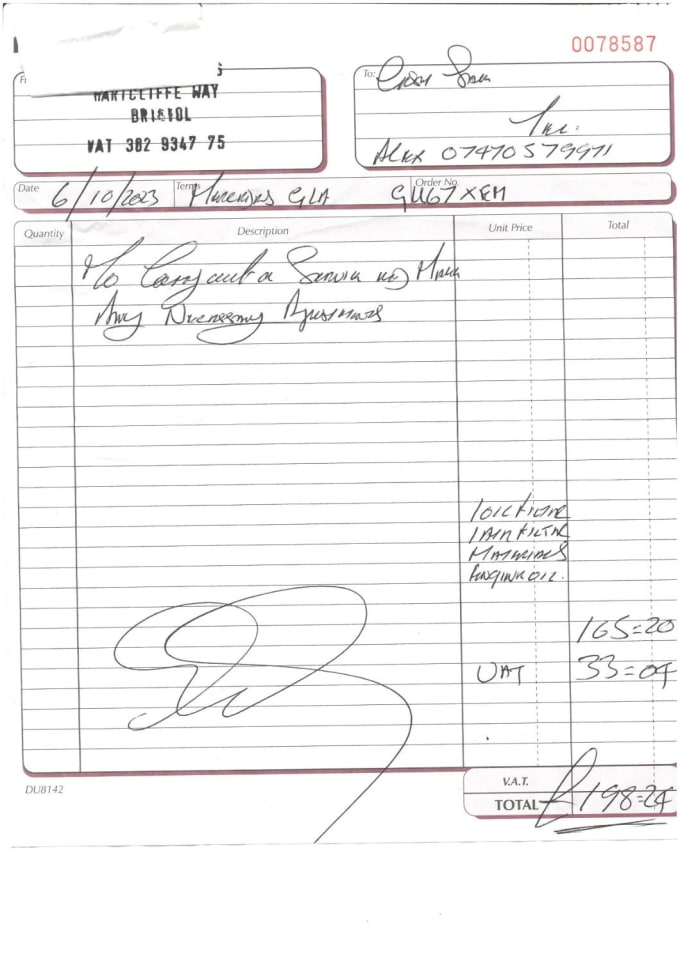 0078587
To: Cash Sale
HARTCLIFFE WAY
BRISTOL
VAT 302 9347 75
Inc.
Alex 07470 579971
Date 6/10/2023 Terms Mercedes GLA Order No. GU67XEM
Quantity Description Unit Price Total
To Carry out a Service and Make
Any Necessary Adjustments
1 OIL FILTER
1 AIR FILTER
MATERIALS
ENGINE OIL.
165=20
VAT 33=04
V.A.T.
TOTAL £198=24
DU8142